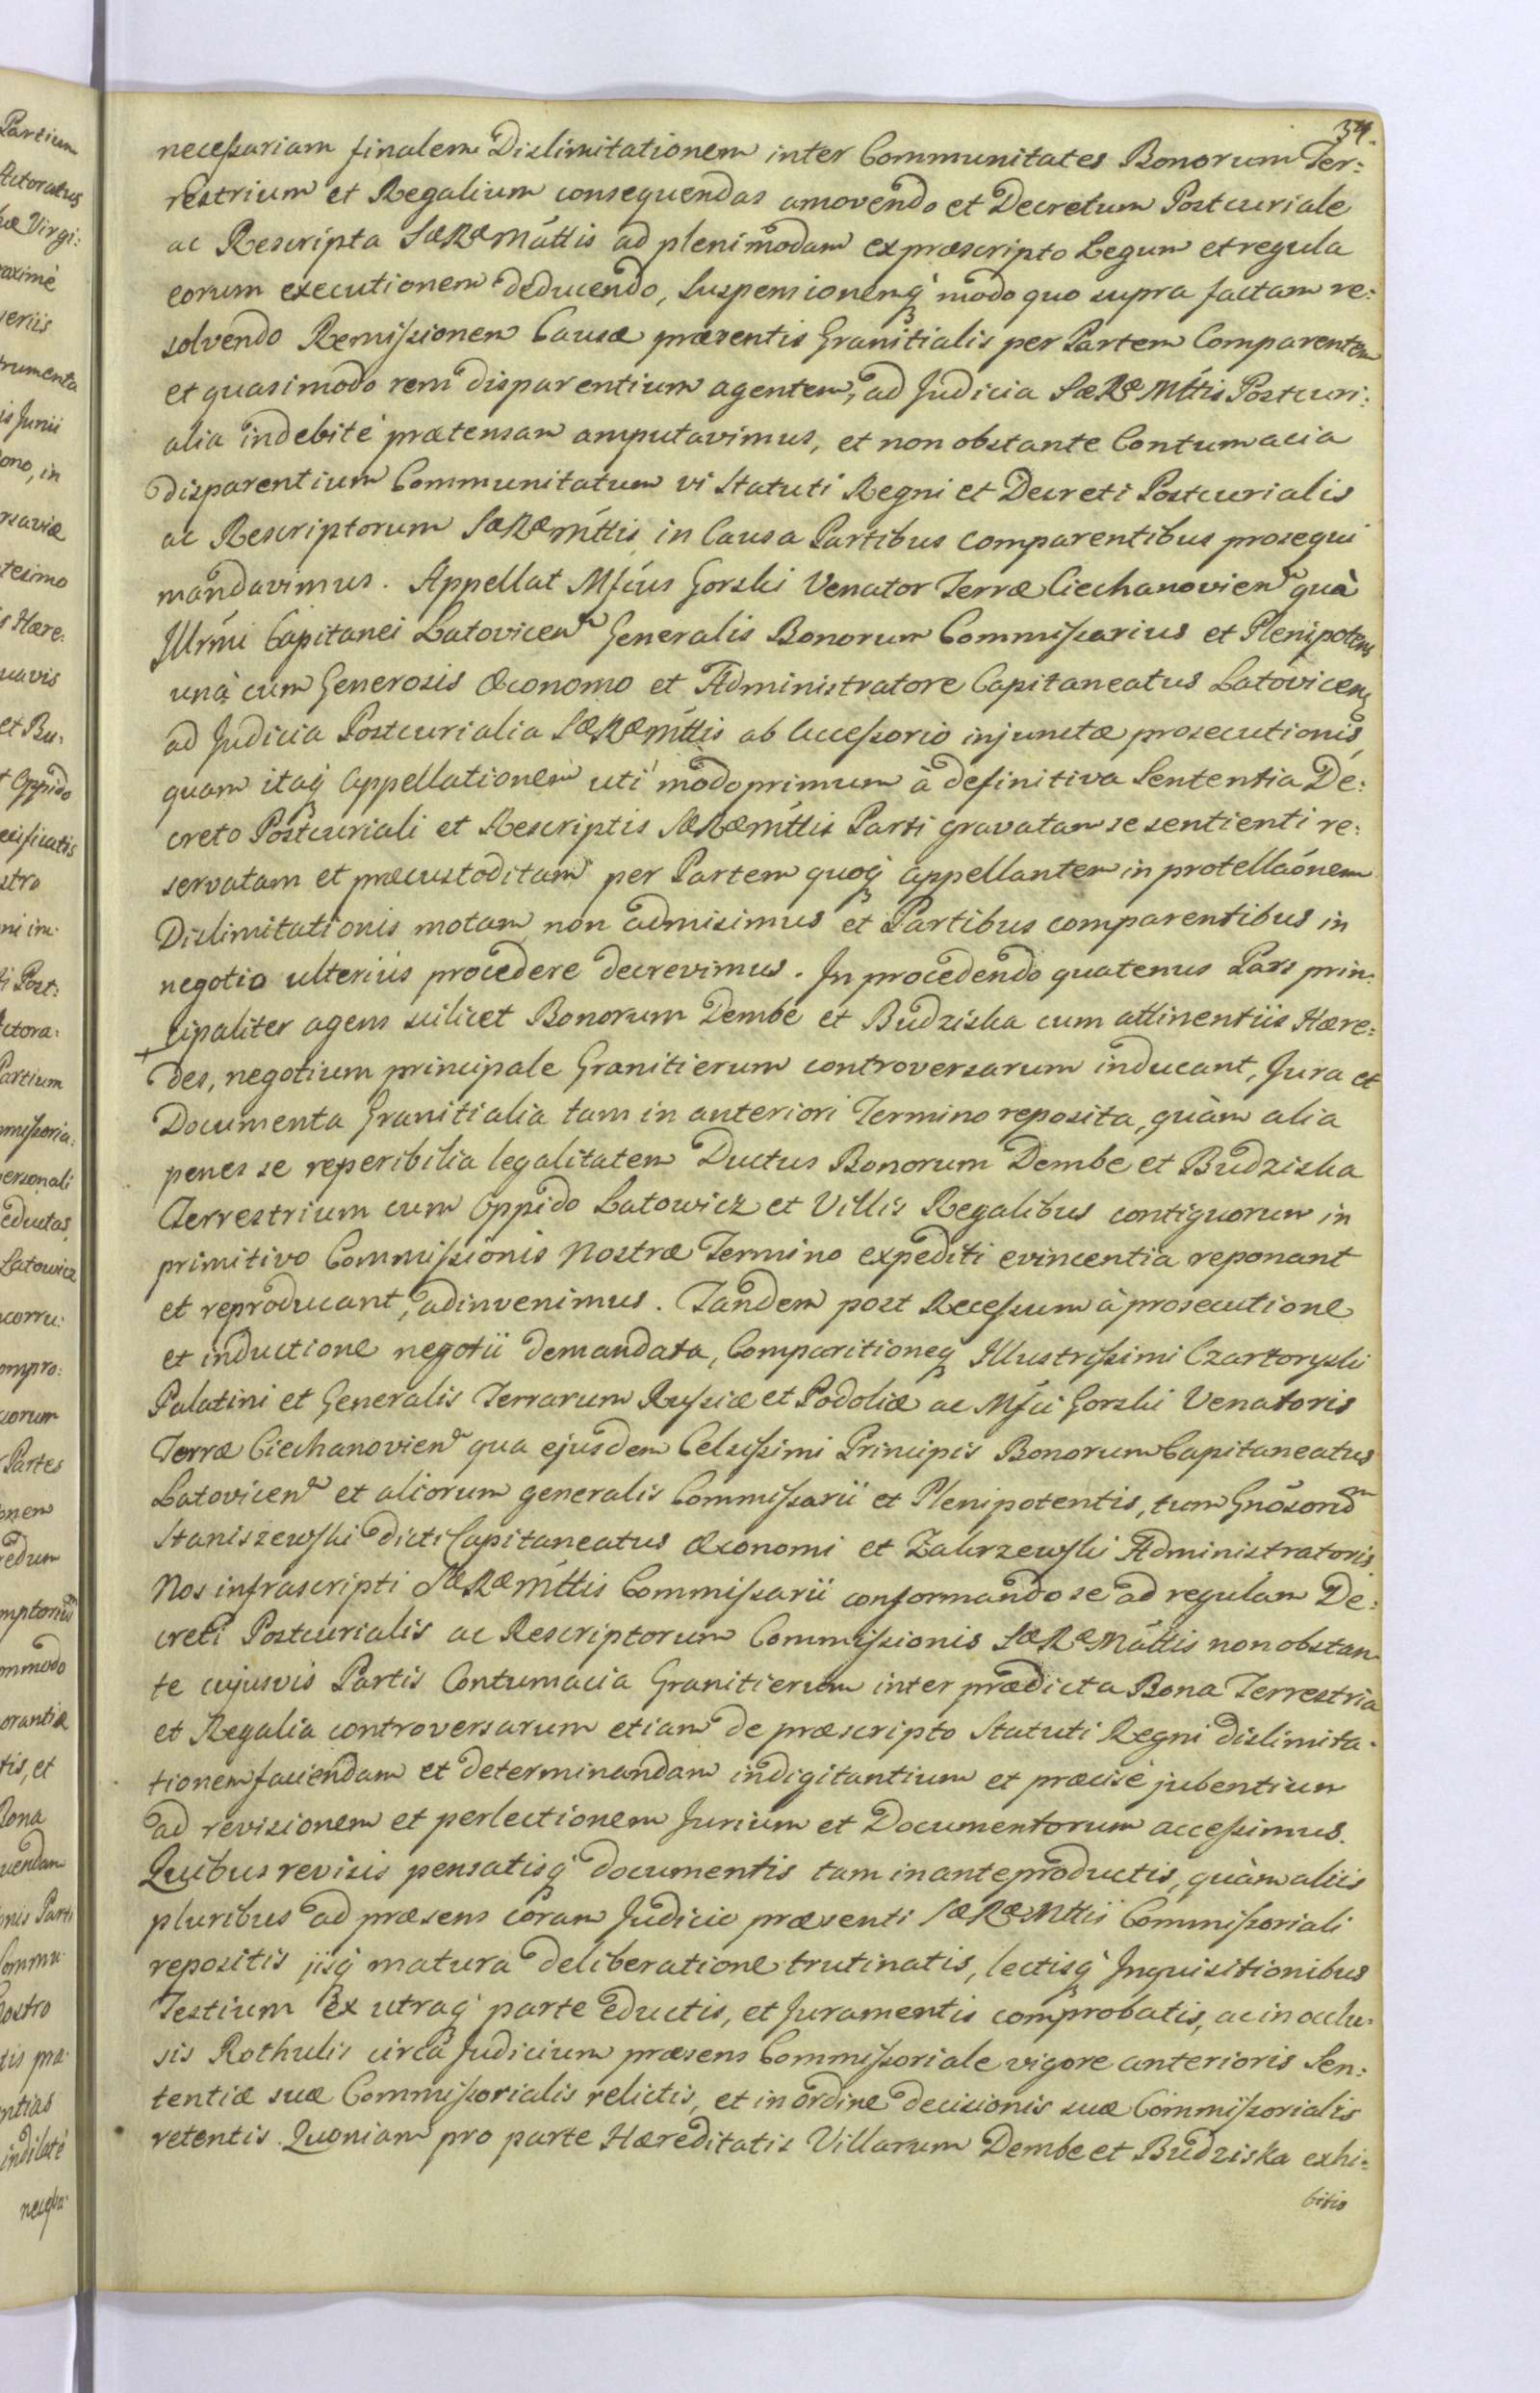 34.
necessariam finalem Dislimitationem inter Communitates Bonorum Ter:
restrium et Regalium consequendas amovendo et Decretum Postcuriale
ac Rescripta SæRæMáttis ad plenimodam ex præscripto Legum et regula
eorum executionem deducendo, suspensionemq́ modo quo supra factam re:
solvendo Remissionem Causæ præsentis Granitialis per Partem Comparentem
et quasimodo rem disparentium agentem, ad Judicia SæRæMttis Postcuri:
alia indebitè prætensam amputavimus, et non obstante Contumacia
disparentium Communitatum vi Statuti Regni et Decreti Postcurialis
ac Rescriptorum SæRæMttis in Causa Partibus comparentibus prosequi
mandavimus. Appellat Mfcus Gorski Venator Terræ Ciechanovien quà
Illrmi Capitanei Latovicen Generalis Bonorum Commissarius et Plenipotens
unà cum Generosis Œconomo et Administratore Capitaneatus Latovicen
ad Judicia Postcurialia SæRæMttis ab Accessorio injunctæ prosecutionis,
quam itaq́ Appellationem uti modo primum à definitiva Sententia De:
creto Postcuriali et Rescriptis SæRæMttis Parti gravatam se sentienti re:
servatam et præcustoditam per Partem quoq́ appellantem in protellaónem
Dislimitationis motam non admisimus et Partibus comparentibus in
negotio ulteriùs procedere decrevimus. In procedendo quatenus Pars prin:
cipaliter agens scilicet Bonorum Dembe et Budziska cum attinentiis Hære:
des, negotium principale Granitierum controversarum inducant, Jura et
Documenta Granitialia tam in anteriori Termino reposita, quàm alia
penes se reperibilia legalitatem Ductus Bonorum Dembe et Budziska
Terrestrium cum Oppido Latowicz et Villis Regalibus contiguorum in
primitivo Commissionis Nostræ Termino expediti evincentia reponant
et reproducant, adinvenimus. Tandem post Recessum à prosecutione
et inductione negotii demandata, Comparitioneq́ Illustrissimi Czartoryski
Palatini et Generalis Terrarum Russiæ et Podoliæ ac Mfci Gorski Venatoris
Terræ Ciechanovien qua ejusdem Celsissimi Principis Bonorum Capitaneatus
Latovicen et aliorum generalis Commissarii et Plenipotentis, tum Gnosorum
Staniszewski dicti Capitaneatus Œconomi et Zakrzewski Administratoris
Nos infrascripti SæRæMttis Commissarii conformando se ad regulam De:
creti Postcurialis ac Rescriptorum Commissionis SæRæMáttis non obstan
te cujusvis Partis Contumacia Granitierum inter prædicta Bona Terrestria
et Regalia controversarum etiam de præscripto Statuti Regni dislimita:
tionem faciendam et determinandam indigitantium et præcisè jubentium
ad revisionem et perlectionem Jurium et Documentorum accessimus.
Quibus revisis pensatisq́ documentis tam in ante productis, quàm aliis
pluribus ad præsens coram Judicio præsenti SæRæMttis Commissoriali
repositis jisq́ matura deliberatione trutinatis, lectisq́ Inquisitionibus
Testium ex utraq́ parte eductis, et Juramentis comprobatis, ac in occlu:
sis Rothulis circa Judicium præsens Commissoriale vigore anterioris Sen:
tentiæ suæ Commissorialis relictis, et in ordine decisionis suæ Commissorialis
retentis. Quoniam pro parte Hæreditatis Villarum Dembe et Budziska exhi:
bitis